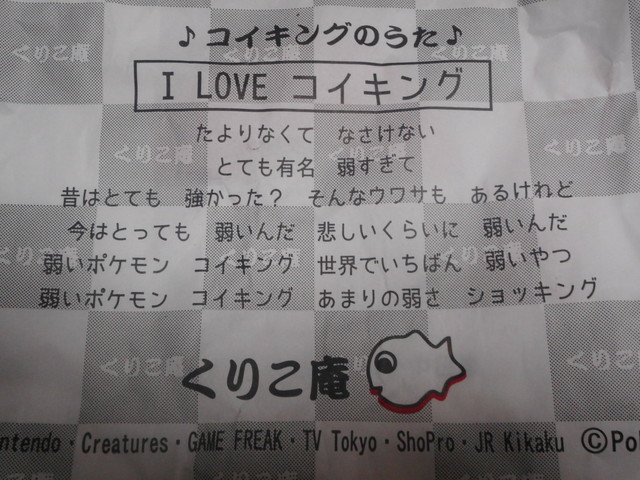 ♪コイキングのうた♪
I LOVE コイキング
たよりなくて なさけない
とても有名 弱すぎて
昔はとても 強かった？ そんなウワサも あるけれど
今はとっても 弱いんだ 悲しいくらいに 弱いんだ
弱いポケモン コイキング 世界でいちばん 弱いやつ
弱いポケモン コイキング あまりの弱さ ショッキング
くりこ庵
intendo・Creatures・GAME FREAK・TV Tokyo・ShoPro・JR Kikaku ©Po
くりこ庵
くりこ庵
くりこ庵
くりこ庵
くりこ庵
くりこ庵